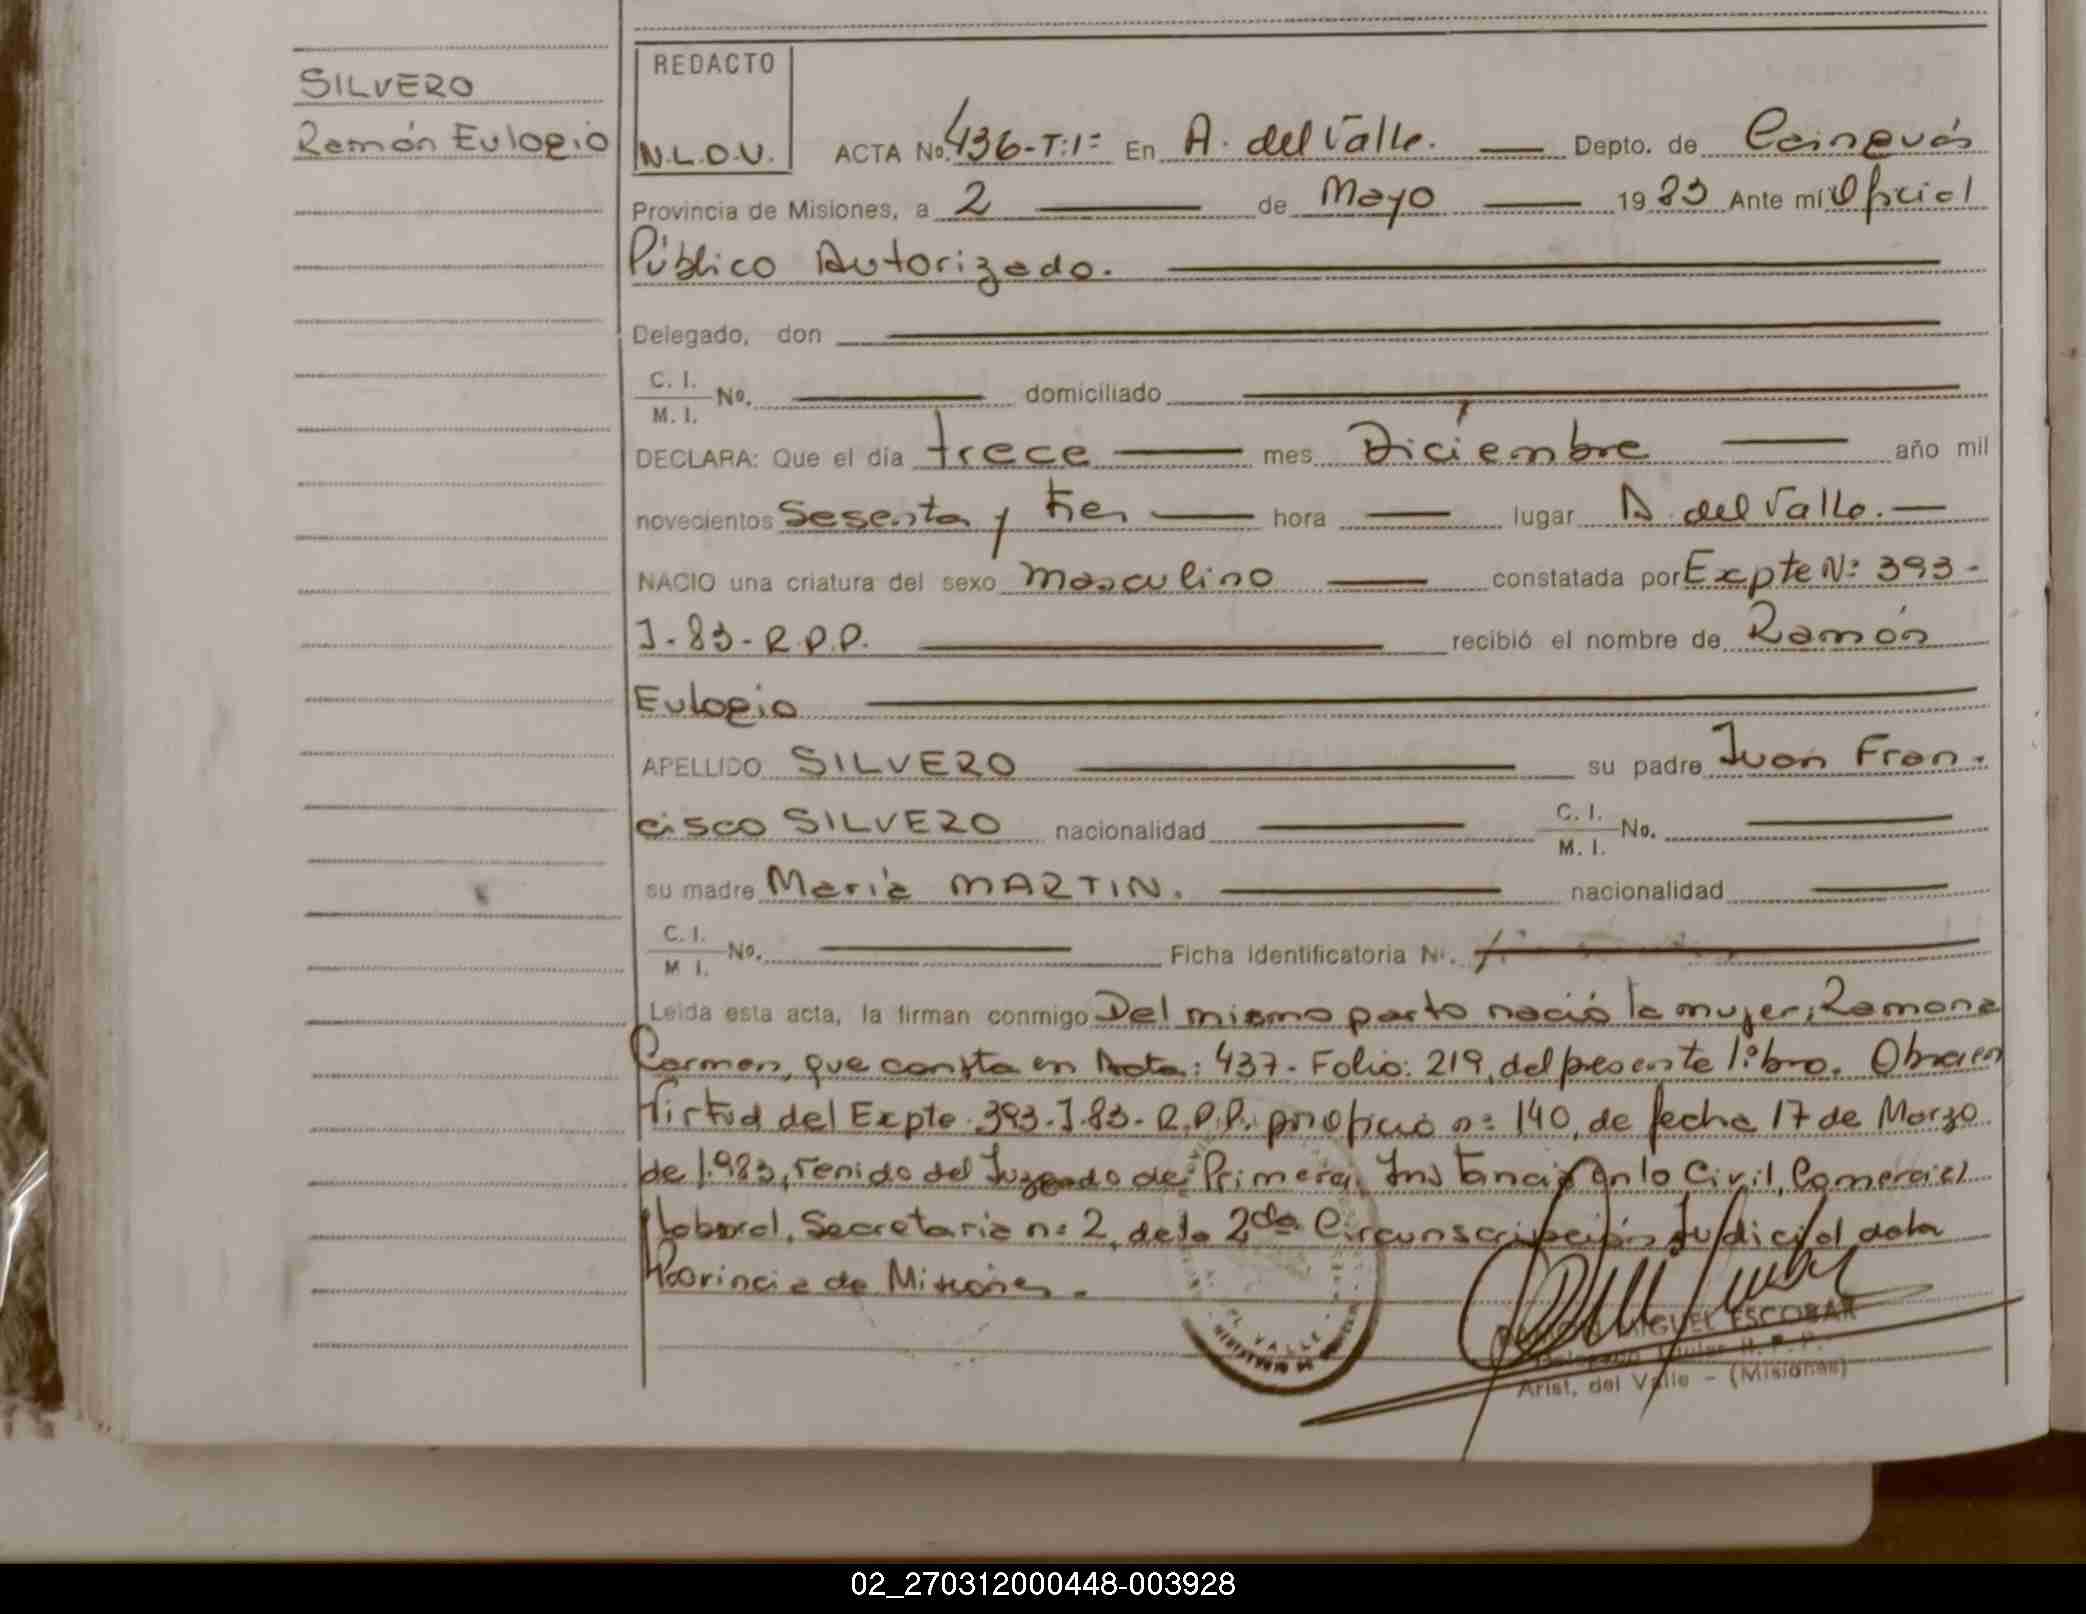 SILVERO
Ramón Eulogio
REDACTO
N.L.O.V.
ACTA No. 436-T:1º En A. del Valle. Depto. de Cainguás
Provincia de Misiones, a 2 de Mayo 19 83 Ante mí Oficial
Público Autorizado.
Delegado, don
C. I.
M. I. No. domiciliado
DECLARA: Que el día trece mes Diciembre año mil
novecientos Sesenta y tres hora lugar A. del Valle.
NACIO una criatura del sexo masculino constatada por Expte Nº 393-
J-83-R.P.P. recibió el nombre de Ramón
Eulogio
APELLIDO SILVERO su padre Juan Fran-
cisco SILVERO nacionalidad C. I.
M. I. No.
su madre María MARTIN. nacionalidad
C. I.
M I. No. Ficha identificatoria N.
Leída esta acta, la firman conmigo Del mismo parto nació la mujer, Ramona
Carmen, que consta en Acta: 437- Folio: 219, del presente libro. Obra en
Virtud del Expte. 393-J-83- R.P.P. por oficio nº 140, de fecha 17 de Marzo
de 1.983, venido del Juzgado de Primera Instancia en lo Civil, Comercial
Laboral, Secretaria nº 2, de la 2da Circunscripción Judicial de la
Provincia de Misiones.
EL VALLE
MIGUEL ESCOBAR
Titular R. P. P.
Arist. del Valle - (Misiones)
02_270312000448-003928